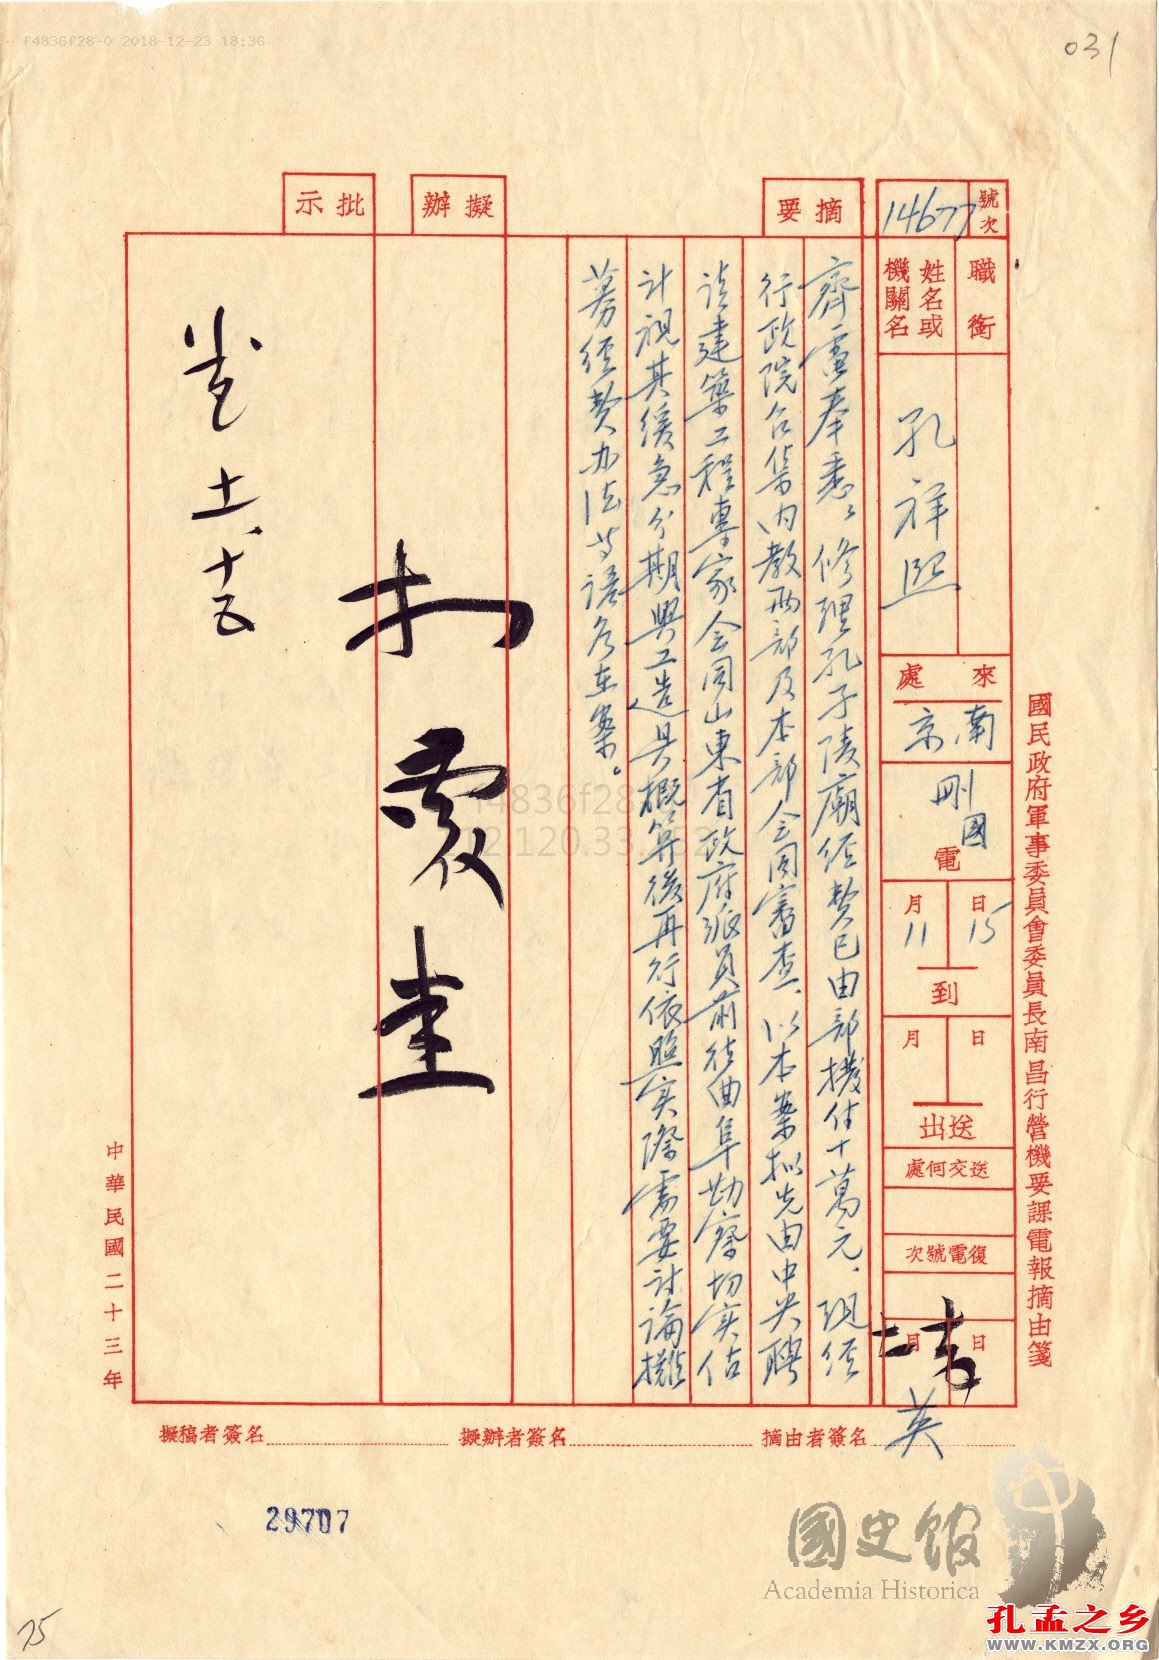 f4836f28-0 2018-12-23 18:36
031
國民政府軍事委員會委員長南昌行營機要課電報摘由箋
號次
14677
職銜
姓名或
機關名
孔祥熙
來處
南京
刪國電
15日
11月
到
日
月
送出
送交何處
復電號次
日
月
摘要
齊電奉悉、修理孔子陵廟經費已由部撥付十萬元、現經
行政院召集內教兩部及本部会同審查、以本案拟先由中央聘
請建築工程專家会同山東省政府派員前往曲阜勘察切实估
計視其緩急分期興工造具概算後再行依照实際需要討論攤
募经費办法等語紀在案。
擬辦
批示
十一、十五
中華民國二十三年
摘由者簽名
英
擬辦者簽名
擬稿者簽名
29707
國史館
Academia Historica
孔孟之乡
WWW.KMZX.ORG
75